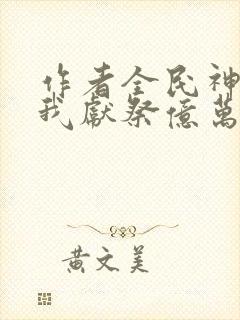 作者全民神
我獻祭億萬
黃文美